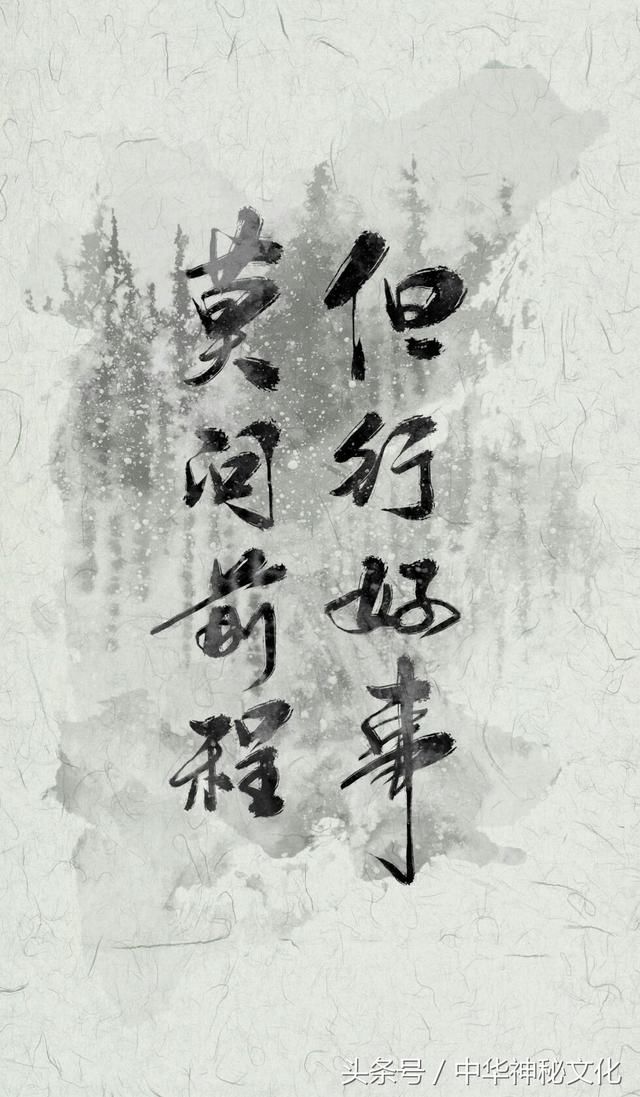 但行好事
莫问前程
头条号 / 中华神秘文化